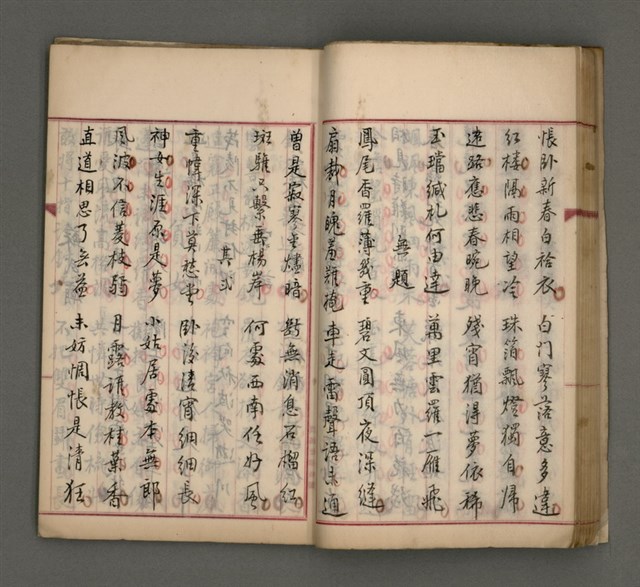 悵卧新春白袷衣 白门寥落意多違
红楼隔雨相望冷 珠箔飄燈獨自歸
遠路應悲春晼晚 殘宵猶得夢依稀
玉璫缄札何由達 萬里雲羅一雁飛
無題
鳳尾香羅薄幾重 碧文圓頂夜深縫
扇裁月魄羞難掩 車走雷聲語未通
曾是寂寥金燼暗 斷無消息石榴红
斑騅只繫垂楊岸 何處西南任好風
其弍
重幃深下莫愁堂 卧後清宵细细長
神女生涯原是夢 小姑居處本無郎
風波不信菱枝弱 月露誰教桂葉香
直道相思了無益 未妨惆悵是清狂